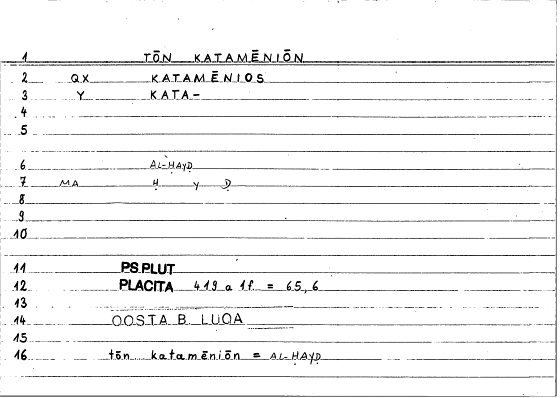 1 TŌN KATAMĒNIŌN
2 QX KATAMĒNIOS
3 Y KATA-
4
5
6 AL-ḤAYḌ
7 MA Ḥ y Ḍ
8
9
10
11 PS.PLUT
12 PLACITA 419 a 1f. = 65,6
13
14 QOSTA B. LUQA
15
16 tōn katamēniōn = AL-ḤAYḌ